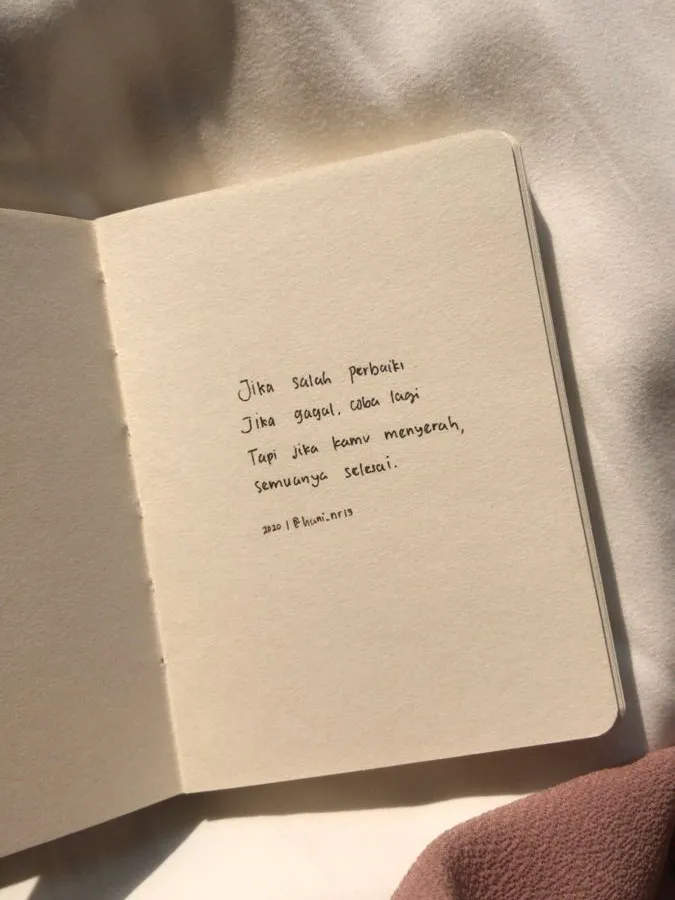 Jika salah perbaiki
Jika gagal, coba lagi
Tapi jika kamu menyerah,
semuanya selesai.
2020 | @hani_nr19